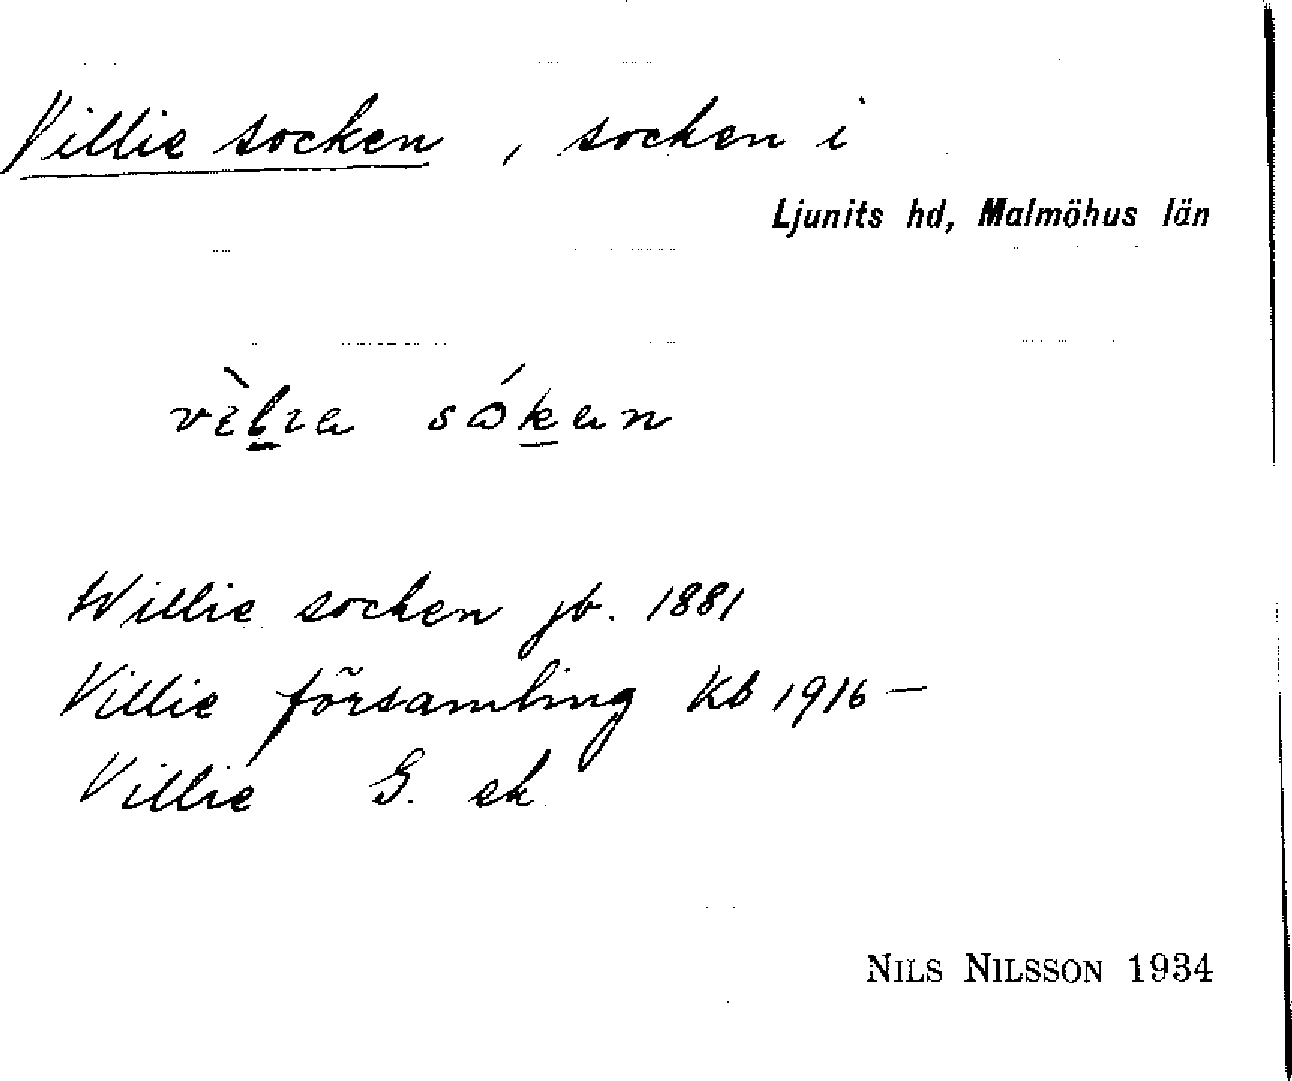 Villie socken, socken i
Ljunits hd, Malmöhus län
Willie socken jb. 1881
Villie församling Kb 1916 —
Villie G. ek
NILS NILSSON 1934